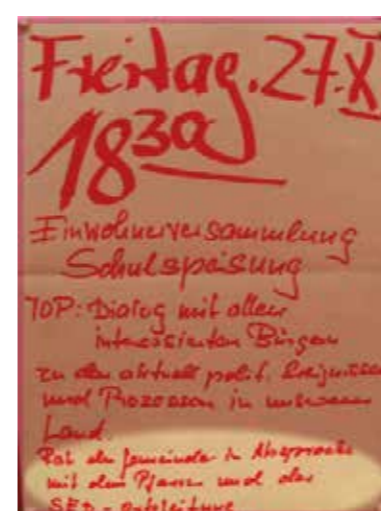 Freitag. 27. X
18 30
Einwohnerversammlung
Schulspeisung
TOP: Dialog mit allen
interessierten Bürgern
zu den aktuell polit. Ereignissen
und Prozessen in unserem
Land.
Rat der Gemeinde in Absprache
mit dem Pfarrer und der
SED-Ortsleitung